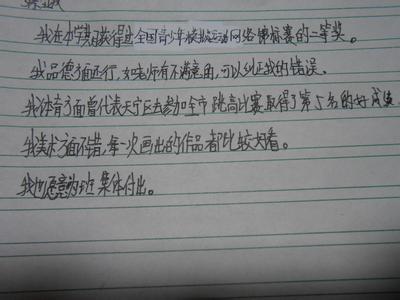 我在本学期获得过全国青少年模拟运动网络锦标赛的二等奖。
我品德方面还行,如老师有不满意的,可以纠正我的错误。
我体育方面曾代表天宁区去参加全市跳高比赛取得了第5名的好成绩
我美术方面不错,每一次画出的作品都比较好看。
我也愿意为班集体付出。